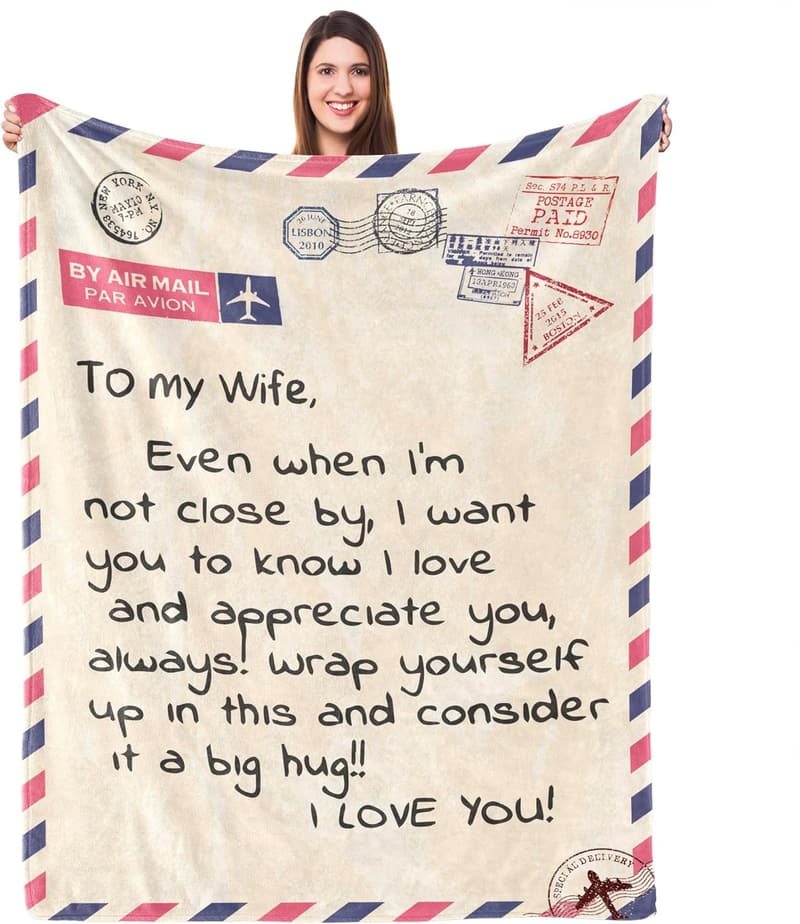 NEW YORK N.Y.
MAY 10
7-PM
NO. 764533
26 JUNE
LISBON
2010
Sec. S74 P.L & R
POSTAGE
PAID
Permit No.8930
HONG KONG
13APR1963
25 FEB
2015
BOSTON
BY AIR MAIL
PAR AVION
TO my Wife,
Even when I'm
not close by, I want
you to know I love
and appreciate you,
always! wrap yourself
up in this and consider
it a big hug!!
I LOVE YOU!
SPECIAL DELIVERY